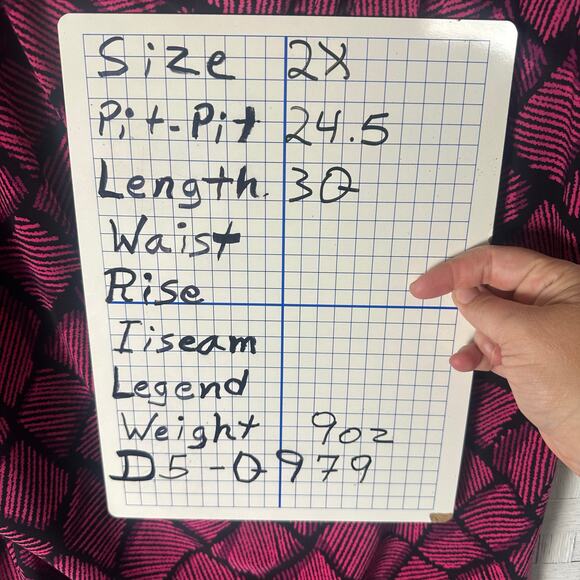 Size 2X
Pit-Pit 24.5
Length. 30
Waist
Rise
Iiseam
Legend
Weight 9oz
D5-0979